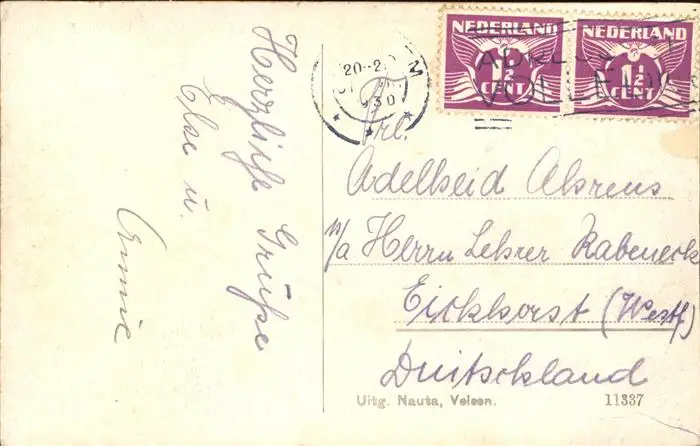 Herzliche Grüße
Else u.
Annie
NEDERLAND
1½
CENT
NEDERLAND
1½
CENT
20-2
M
930
Frl.
Adelheid Ahrens
p/a Herrn Lehrer Rabeneck
Eickhorst (Westf)
Duitschland
Uitg. Nauta, Velsen.
11337